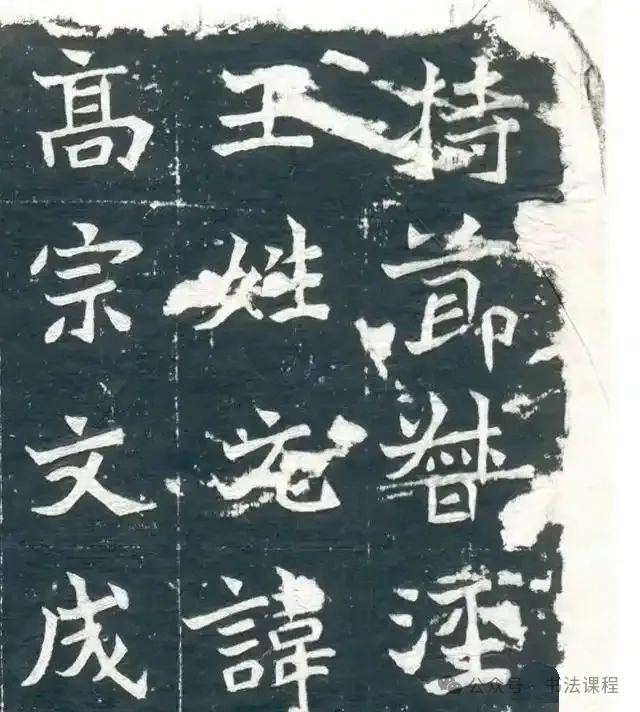 持節督涇
王姓元諱
高宗文成
公众号 · 书法课程